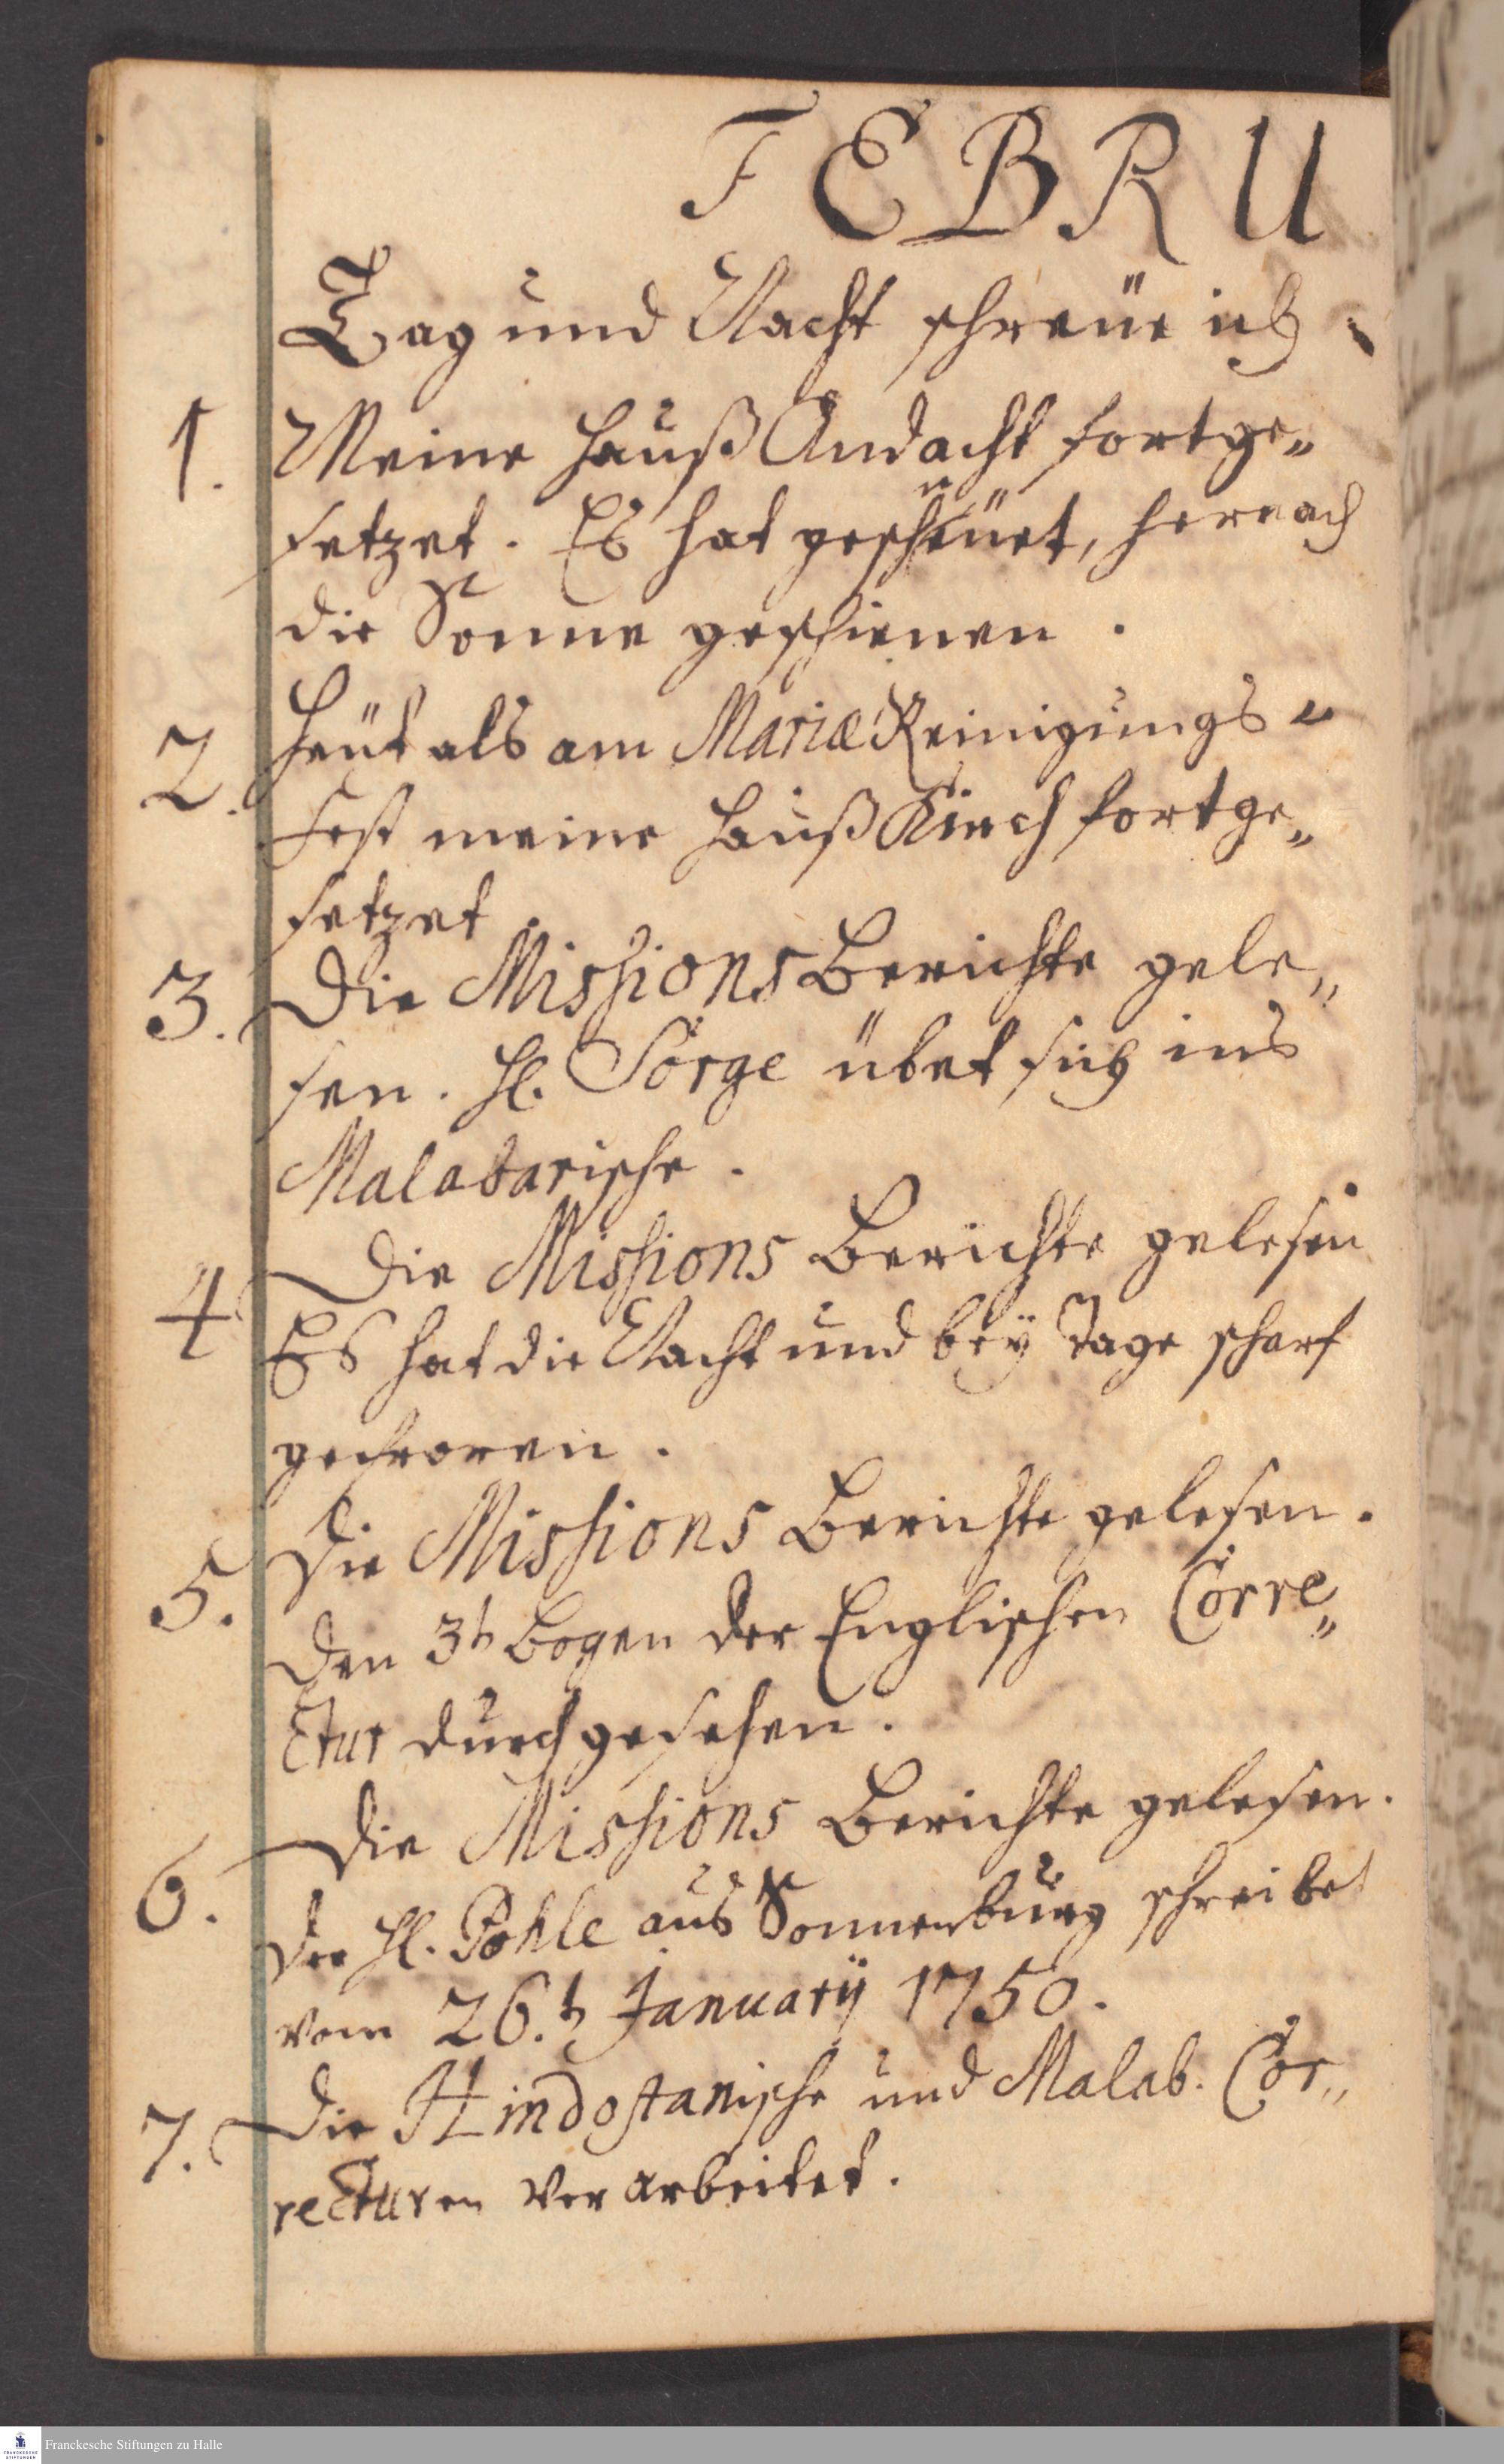 FEBRU
Tag und Nacht schreüe ich
1. Meine Hauß Andacht fortge„
setzet. Es hat geschneüet, hernach
die Sonne geschienen.
2. Heüt als am Mariæ Reinigungs„
Fest meine Hauß Kirch fortge„
setzet
3. Die Missions Berichte gele„
sen. H. Sörge übet sich ins
Malabarische.
4 Die Missions Berichte gelesen
Es hat die Nacht und beÿ Tage scharf
gefroren.
5. Die Missions Berichte gelesen.
Den 3t Bogen der Englischen Corre„
ctur durchgesehen.
6. Die Missions Berichte gelesen.
Der H. Pohle aus Sonnenburg schreibet
vom 26.t Januarÿ 1750.
7. Die Hindostanische und Malab. Cor„
recturen verarbeitet.
Franckesche Stiftungen zu Halle